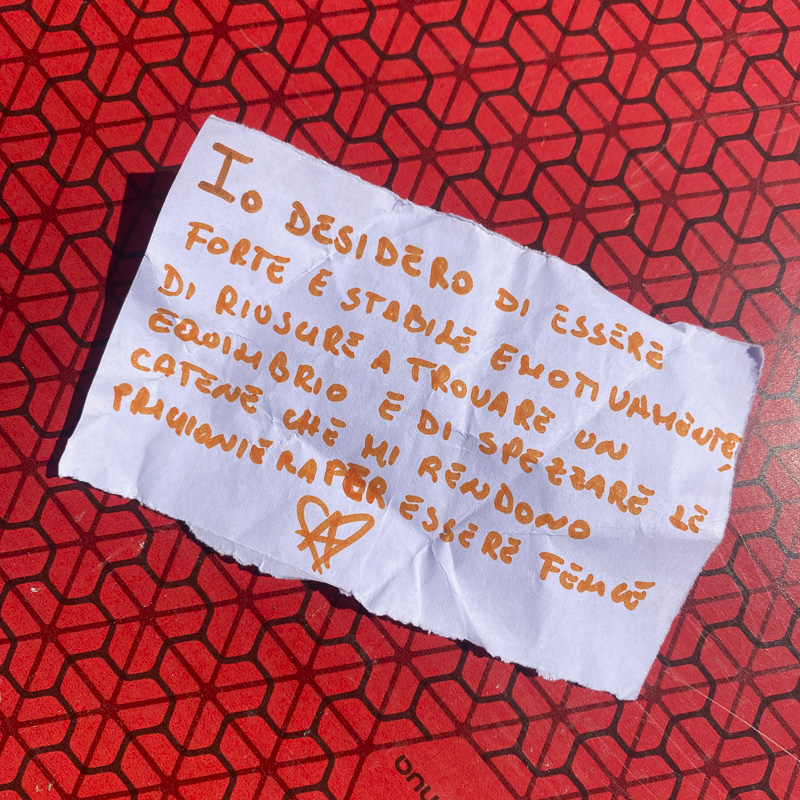 Io DESIDERO DI ESSERE
FORTE E STABILE EMOTIVAMENTE,
DI RIUSCIRE A TROVARE UN
EQUILIBRIO E DI SPEZZARE LE
CATENE CHE MI RENDONO
PRIGIONIERA PER ESSERE FELICE